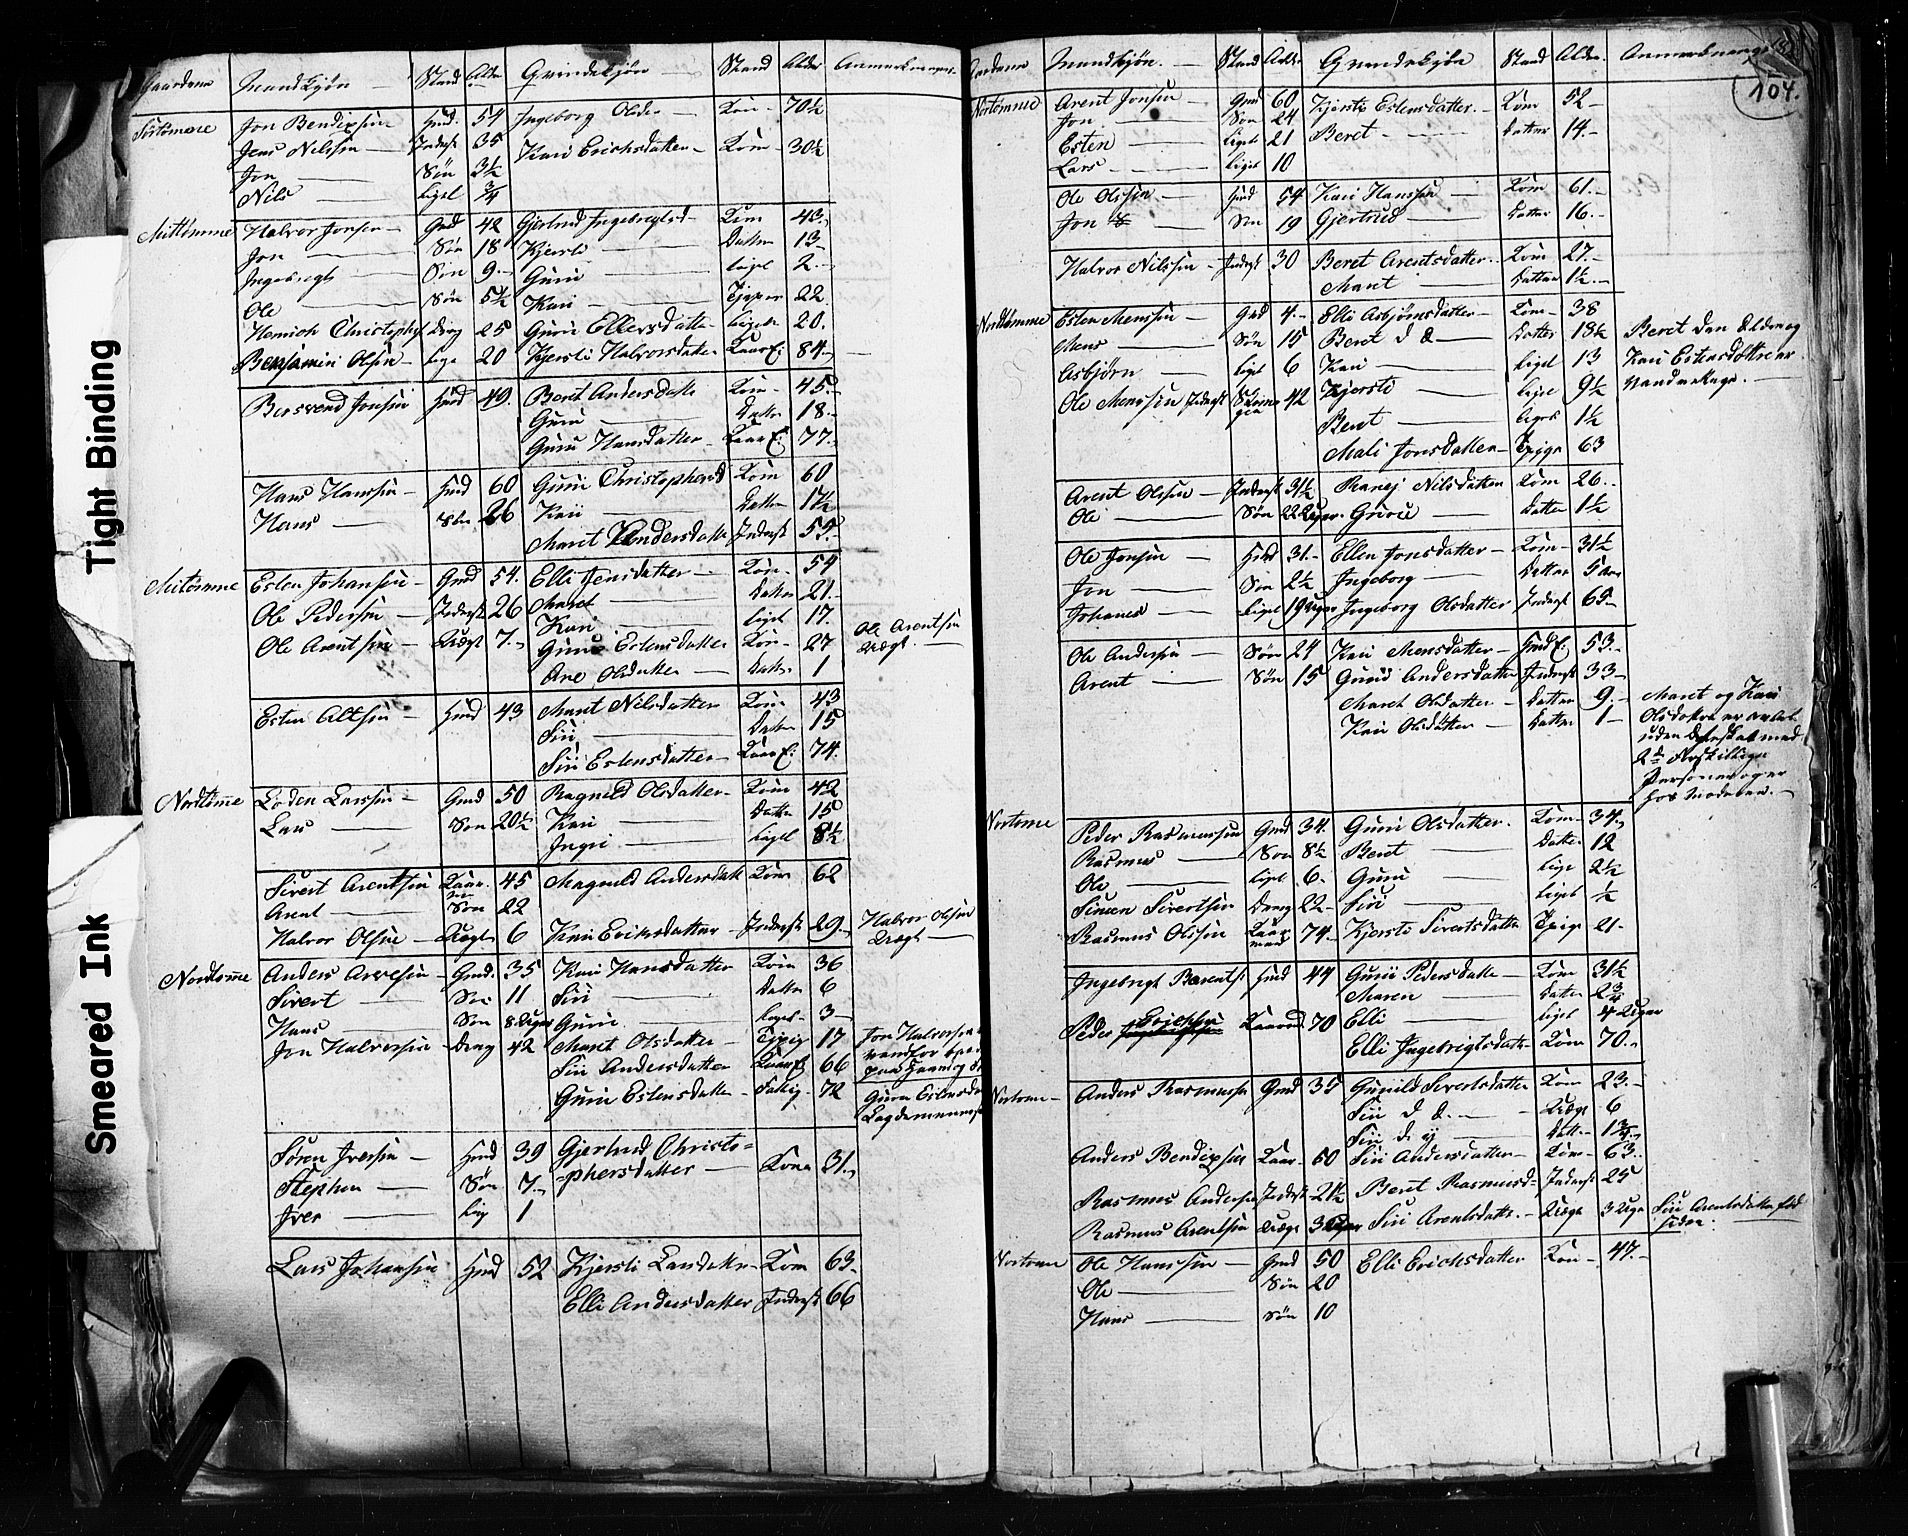 Tight Binding
Smeared Ink
Gaardene Mandkjön Stand Alder Qvindekjön Stand Alder Anmerkninger
Jon Bendixsen Hmd. 54 Ingeborg Olsdr Kon 70½
Jens Nilssen Inderst 35 Kari Erichsdatter Kone 30½
Jon Sön 3½
Nils ligel ¾
Mittømme Halvor Jonsen Gmd 42 Gjertrud Ingebregtsd Kone 43
Jon Sön 18 Kjersti Datter 13
Ingebregt Sön 9 Guru ligel 2
Ole Sön 5½ Kari Tjener 22
Henrich Christophs Dreng 25 Guru Ellersdatter ligel 20
Benjamin Olsen lige 20 Kjersti Halvorsdatter Kaar E. 84
Bersvend Jonsen Hmd 49 Beret Andersdatter Kone 45
Guru Datter 18
Guru Hansdatter Kaar E. 77
Hans Hanssen Hmd 60 Guru Christophersd Kone 60
Hans Sön 26 Kari Datter 17½
Maret Andersdatter Inderst 55
Mittømme Esten Johansen Gmd 54 Elli Jensdatter Kone 54
Ole Pedersen Inderst 26 Maret Datter 21
Kari ligel 17
Ole Arentsen Lægt 7 Guru Estensdatter Kone 27 Ole Arentsen Lægt
Ane Olsdatter Datter 1
Esten Altsen Hmd 43 Maret Nilsdatter Kone 43
Siri Datter 15
Siri Estensdatter Kaar E. 74
Nordtømme Loden Larssen Gmd 50 Ragnild Olsdatter Kone 42
Lars Sön 20½ Kari Datter 15
Ingri ligel 8½
Sivert Arentsen Kaar 45 Magnild Andersdatter Kone 62
Arent Sön 22
Halvor Olsen Lægt 6 Kari Eriksdatter Inderst 29 Halvor Olsen Lægt
Nordtømme Anders Arvesen Gmd. 35 Kari Hansdatter Kone 36
Sivert Sön 11 Siri Datter 6
Hans Sön 8 Uger Guru ligel 3
Jon Halvorsen Dreng 42 Maret Olsdatter Tjpig 17 Jon Halvorsen
Siri Andersdatter Kaar E. 66
Guru Estensdatter Fattig 72 Guru Estensda
Søren Iversen Hmd 39 Gjertrud Christo-
phersdatter Kone 31
Stephen Sön 7
Iver lig 1
Lars Johansen Hmd 52 Kjersti Larsdatter Kone 63
Elli Andersdatter Inderst 66
104.
Gaardene Mandkjön Stand Alder Qvindekjön Stand Alder Anmerkninger
Nortømme Arent Jonsen Gmd 60 Kjersti Estensdatter Kone 52
Jon Sön 24 Beret Datter 14
Esten ligel 21
Lars ligel 10
Ole Olssen Hmd 54 Kari Hanssen Kone 61
Jon Sön 19 Gjertrud Datter 16
Halvor Nilssen Inderst 30 Beret Arentsdatter Kone 27
Maret Datter 1½
Nordtømme Esten Monssen Gmd 4 Elli Asbjørnsdatter Kone 38
Mons Sön 15 Beret d Æ Datter 18½ Beret den Ældre og
Asbjørn ligel 6 Kari ligel 13 Kari Estensdøttre er
Ole Monssen Inderst 42 Kjersti ligel 9½ Vandvekege.
Beret ligel 1½
Mali Jonsdatter Tpige 63
Arent Olssen Inderst 31½ Ranej Nilsdatter Kone 26
Ole Sön 22 Uger Guru Datter 1½
Ole Jonsen Hmd 31 Ellen Jonsdatter Kone 31½
Jon Sön 2½ Ingeborg Datter 5 Aar
Johanes ligel 19 Uger Ingeborg Olsdatter Inderst 65
Ole Andersen Sön 24 Kari Monsdatter Hmd E. 53
Arent Sön 15 Gunild Andersdatter Inderst 33
Maret Olsdatter Datter 9 Maret og Kari
Kari Olsdatter Datter 1 Olsdøttre er avlet
uden Ægteskab med
2de forskillige
Personer og er
hos Moderen.
Nortomme Peder Rasmussen Gmd 34 Guru Olsdatter Kone 34
Rasmus Sön 8½ Beret Datter 12
Ole ligel 6 Guru lige 2½
Simen Sivertsen Dreng 22 Siri ligel ½
Rasmus Olssen Kaarmand 74 Kjersti Sivertsdatter Tpige 21
Ingebrigt Berents Hmd 44 Guru Pedersdatter Kone 31½
Maren Datter 2¾
Peder Erichsen Kaarmd 70 Elli ligel 4 Uger
Elli Ingebrigtsdatter Kone 70
Nortomme Anders Rasmussen Gmd 35 Gunild Sivertsdatter Kone 23
Siri d Æ. Lægt 6
Siri d. y Datter 1¾
Anders Bendixsen Kaar 60 Siri Andersdatter Kone 63
Rasmus Andersen Inderst 21½ Beret Rasmusd Inderst 25
Rasmus Arentsen Lægt 3 Uger Siri Arentsdatter Lægt 3 Uge Siri Arentsdatter fød
siden.
Nortomme Ole Hanssen Gmd 50 Elli Erichsdatter Kone 47
Ole Sön 20
Hans Sön 10